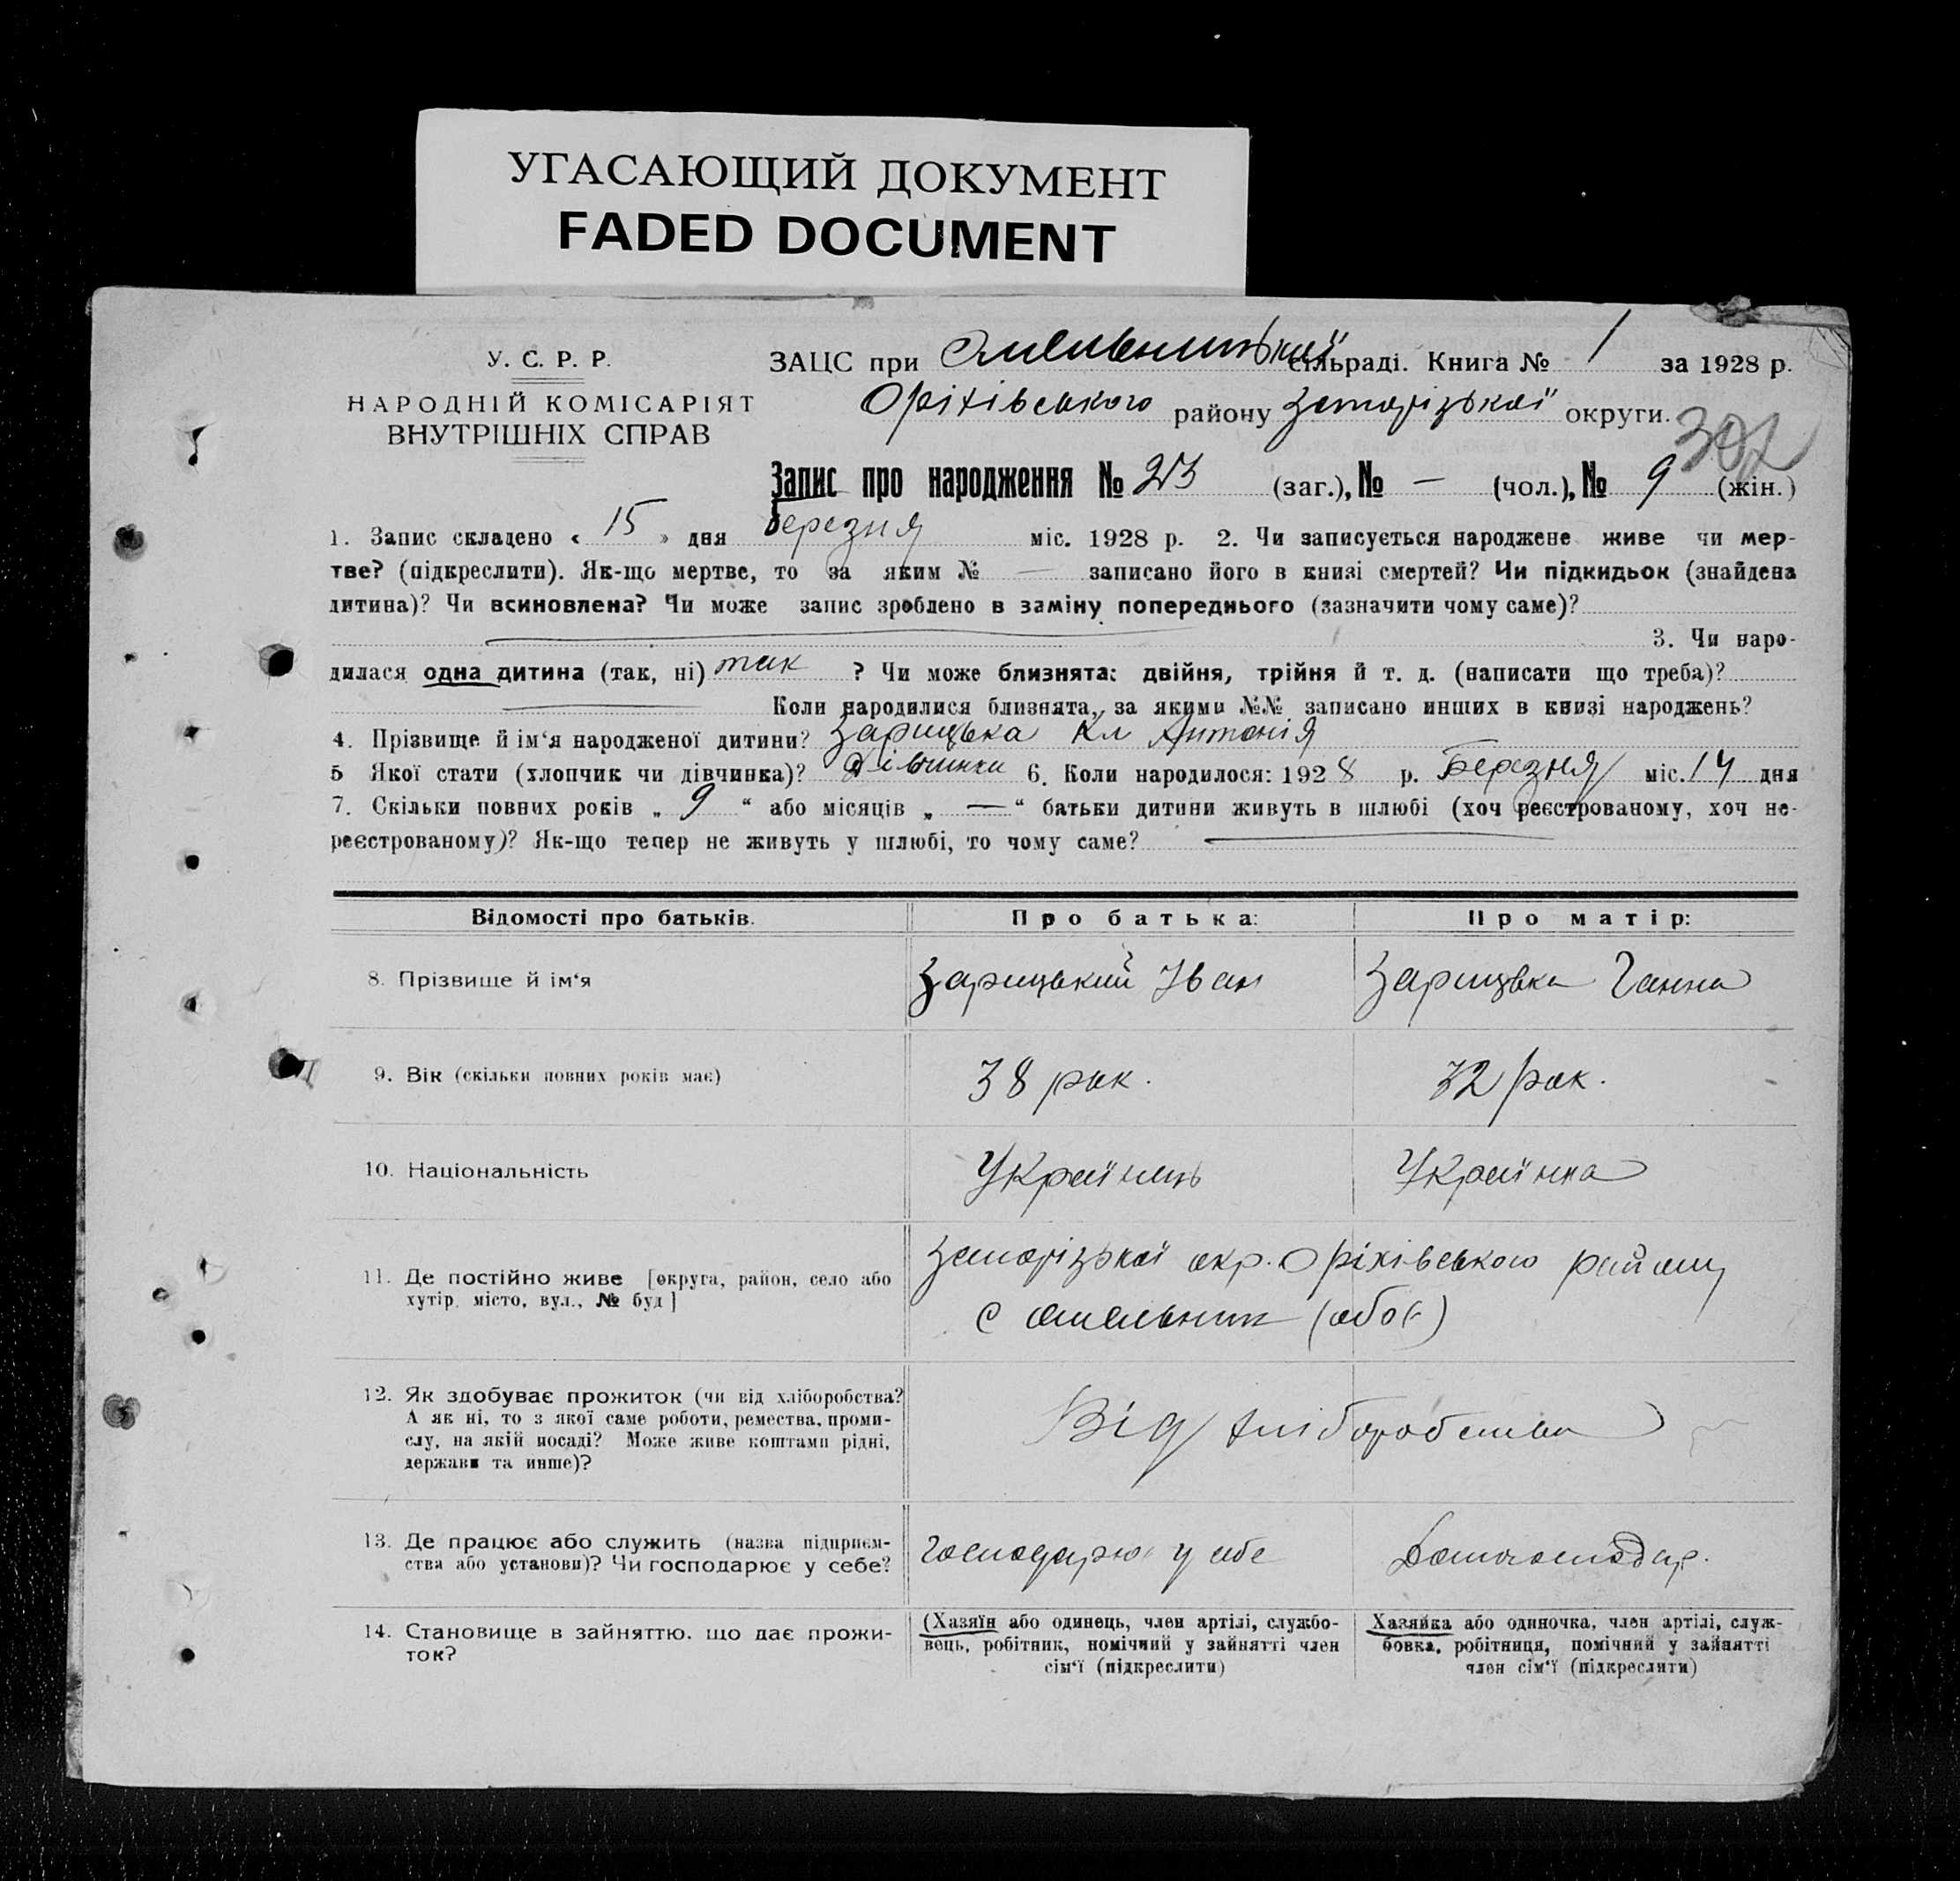 УГАСАЮЩИЙ ДОКУМЕНТ
FADED DOCUMENT
У. С. Р. Р.
НАРОДНІЙ КОМІСАРІЯТ
ВНУТРІШНІХ СПРАВ
ЗАЦС при Омельницькій сільраді. Книга № 1 за 1928 р.
Оріхівського району Запорізької округи.
302
Запис про народження № 23 (заг.), № — (чол.), № 9 (жін.)
1. Запис складено « 15 » дня березня міс. 1928 р. 2. Чи записується народжене живе чи мер-
тве? (підкреслити). Як-що мертве, то за яким № — записано його в книзі смертей? Чи підкидьок (знайдена
дитина)? Чи всиновлена? Чи може запис зроблено в заміну попереднього (зазначити чому саме)?
3. Чи наро-
дилася одна дитина (так, ні) так ? Чи може близнята: двійня, трійня й т. д. (написати що треба)?
Коли народилися близнята, за якими №№ записано инших в книзі народжень?
4. Прізвище й ім‘я народженої дитини? Зарицька Антонія
5 Якої стати (хлопчик чи дівчинка)? Дівчинка 6. Коли народилося: 1928 р. Березня міс. 14 дня
7. Скільки повних років „ 9 “ або місяців „ — “ батьки дитини живуть в шлюбі (хоч реєстрованому, хоч не-
реєстрованому)? Як-що тепер не живуть у шлюбі, то чому саме?
Відомості про батьків. Про батька: Про матір:
8. Прізвище й ім‘я Зарицький Іван Зарицька Ганна
9. Вік (скільки повних років має) 38 рок. 32 рок.
10. Національність Українець Українка
11. Де постійно живе [округа, район, село або
хутір, місто, вул., № буд]
Запорізької окр. Оріхівського району
с Омельник (обоє)
12. Як здобуває прожиток (чи від хліборобства?
А як ні, то з якої саме роботи, ремества, проми-
слу, на якій посаді? Може живе коштами рідні,
держави та инше)?
Від хліборобства
13. Де працює або служить (назва підприєм-
ства або установи)? Чи господарює у себе?
Господарює у себе Домогосподар.
14. Становище в зайняттю, що дає прожи-
ток?
(Хазяїн або одинець, член артілі, службо-
вець, робітник, помічний у зайнятті член
сім‘ї (підкреслити)
Хазяйка або одиночка, член артілі, служ-
бовка, робітниця, помічний у зайнятті
член сім‘ї (підкреслити)